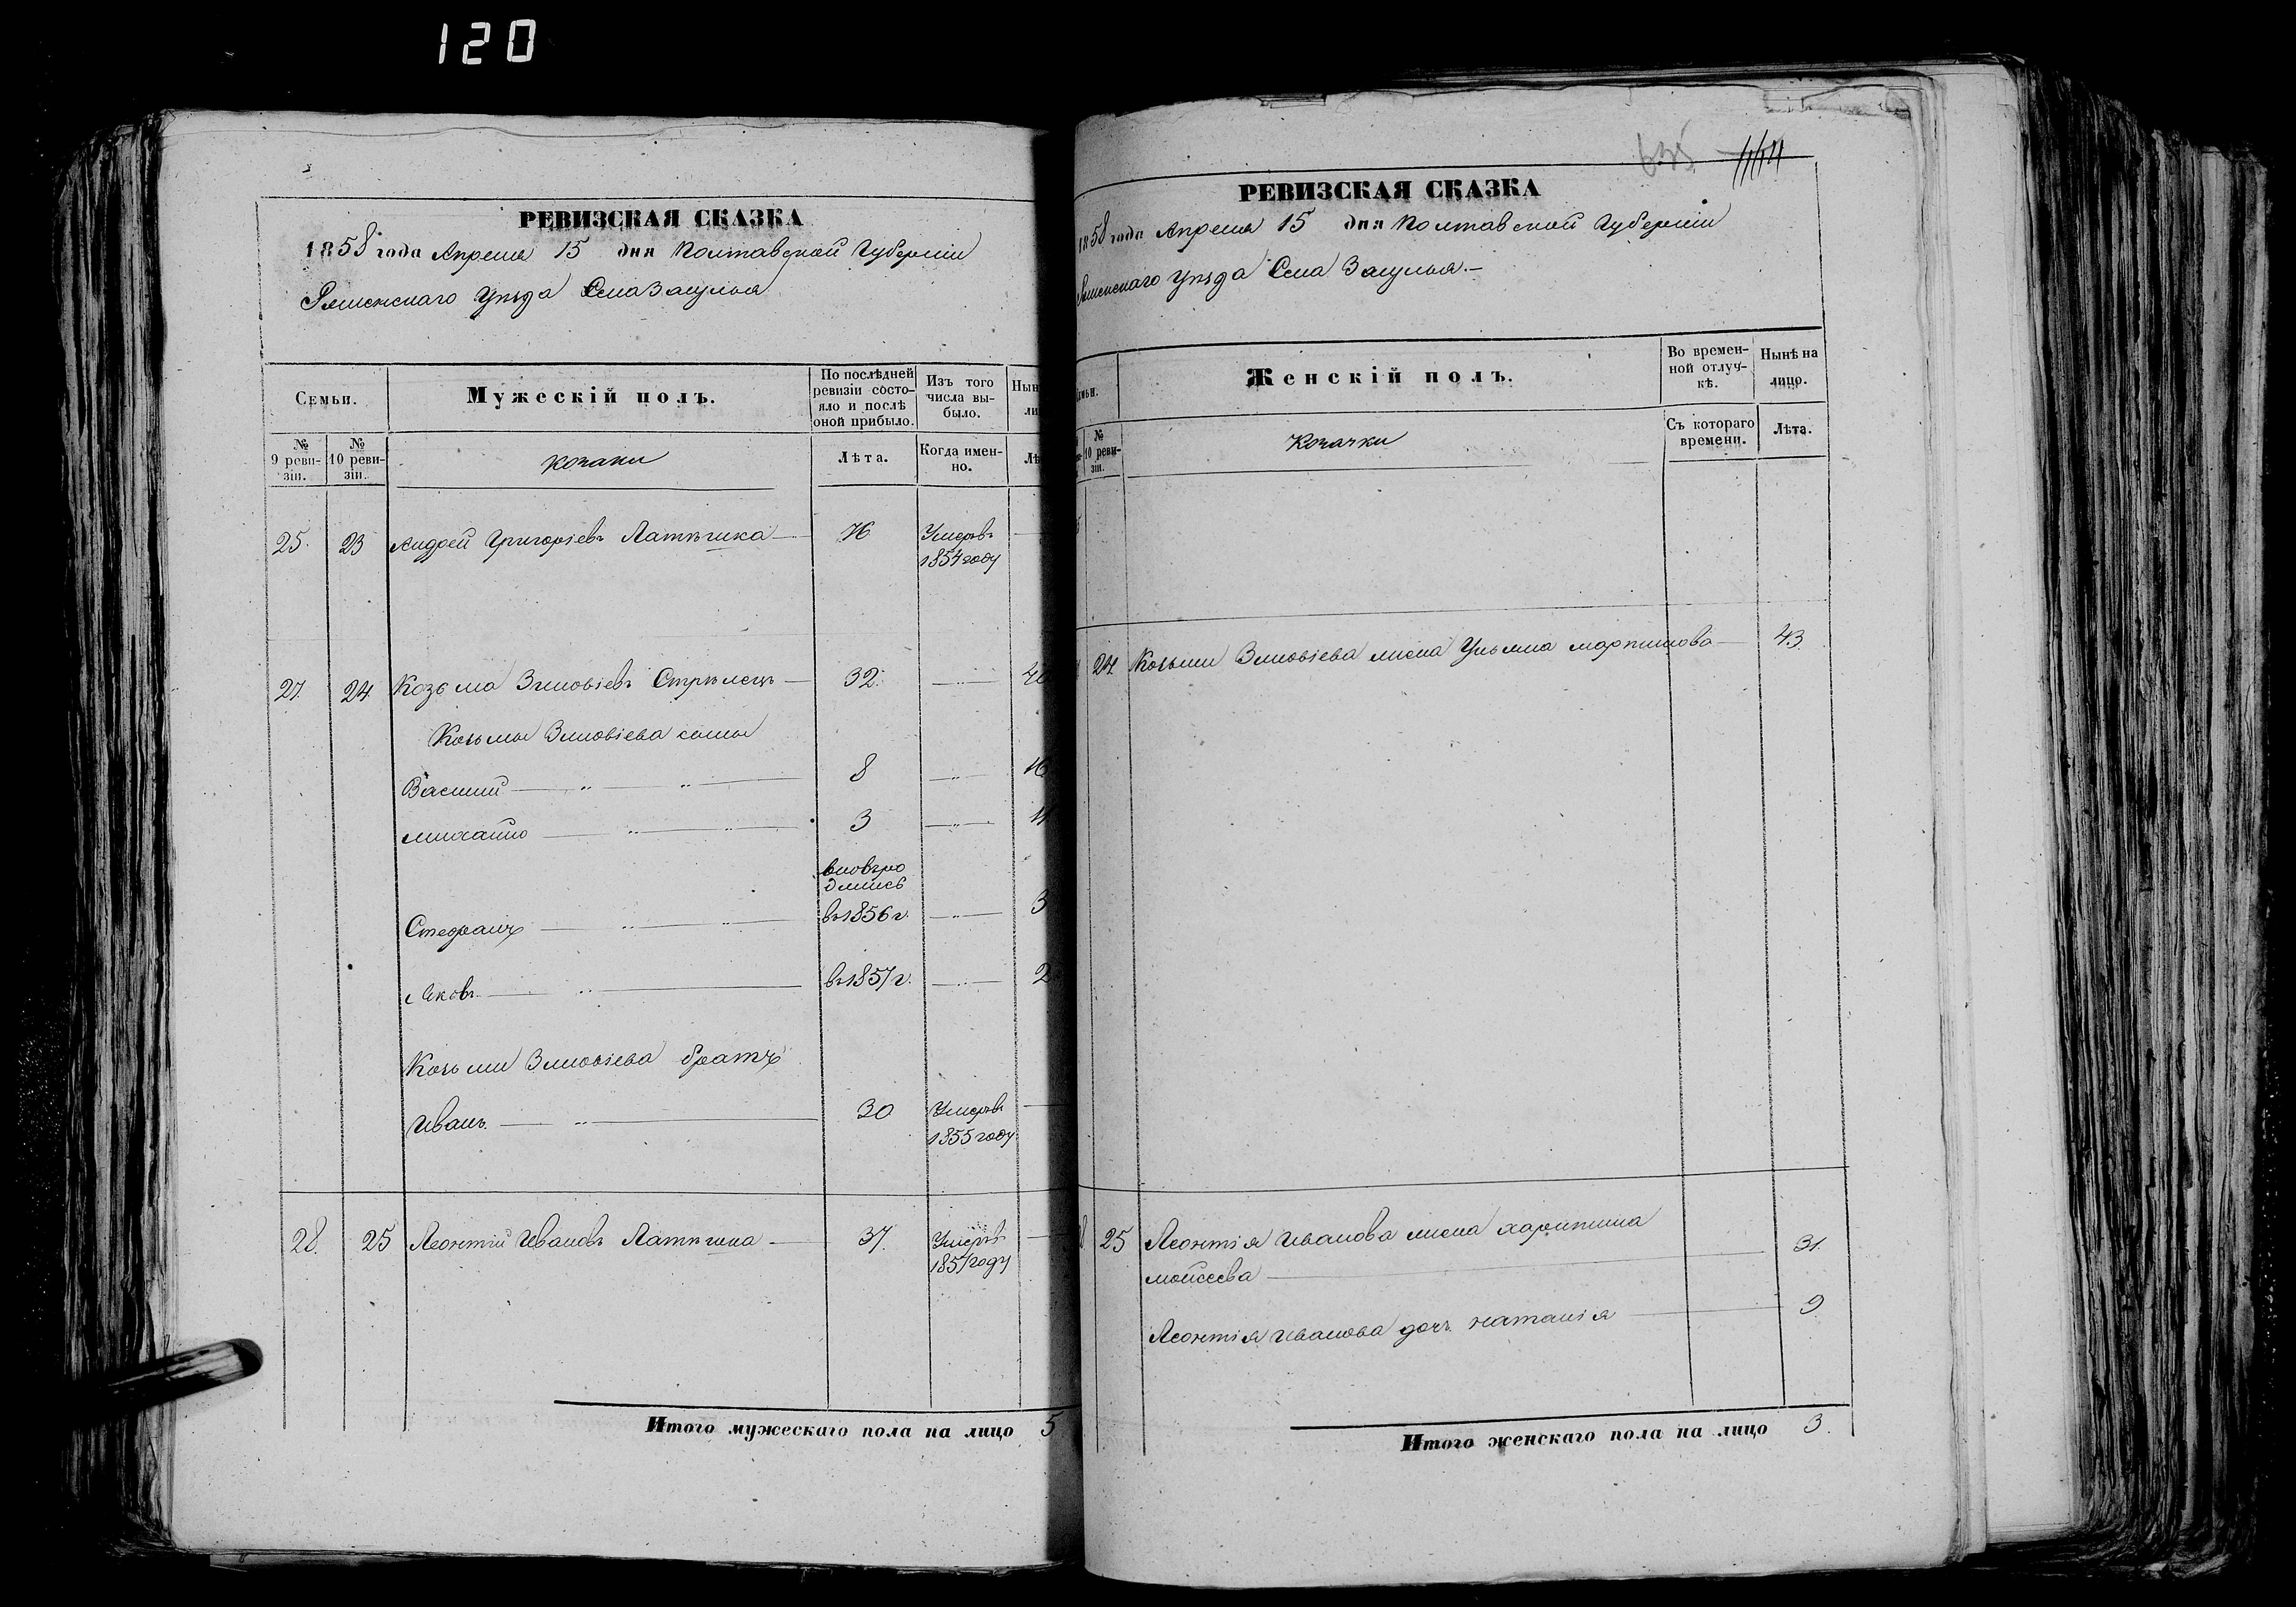 120
РЕВИЗСКАЯ СКАЗКА
1858 года Апреля 15 дня Полтавской Губерніи
Роменскаго Уѣзда Села Засулья
Семьи.
Мужескій полъ.
По послѣдней ревизіи состояло и послѣ оной прибыло.
Изъ того числа выбыло.
№ 9 ревизіи.
№ 10 ревизіи.
козаки
Лѣта.
Когда именно.
25. 23 Андрей Григоріевъ Латышка 76 Умеръ въ
1854 году
27. 24 Козьма Зиновіевъ Стрѣлецъ 32.
Козьмы Зиновіева сыны
Василий 8 16
Михайло 3 11
вновь ро
дились
Стефанъ въ 1856 г. 3
Яковъ въ 1857 г. 2
Козьмы Зиновіева братъ
Иванъ 30 Умеръ въ
1855 году
28. 25 Леонтій Ивановъ 37. Умеръ въ
1857 году
Итого мужескаго пола на лицо 5
635
РЕВИЗСКАЯ СКАЗКА
1858 года Апреля 15 дня Полтавской Губерніи
Роменскаго Уѣзда Села Засулья.-
Женскій полъ.
Во временной отлучкѣ.
Нынѣ на лицо.
№ 10 ревизіи.
Козачки
Съ котораго времени.
Лѣта.
24 Козьмы Зиновіева жена Ульяна Мартинова 43
25 Леонтія Иванова жена Харитина
Мойсеева 31.
Леонтія Иванова дочь Наталія 9
Итого женскаго пола на лицо 3.